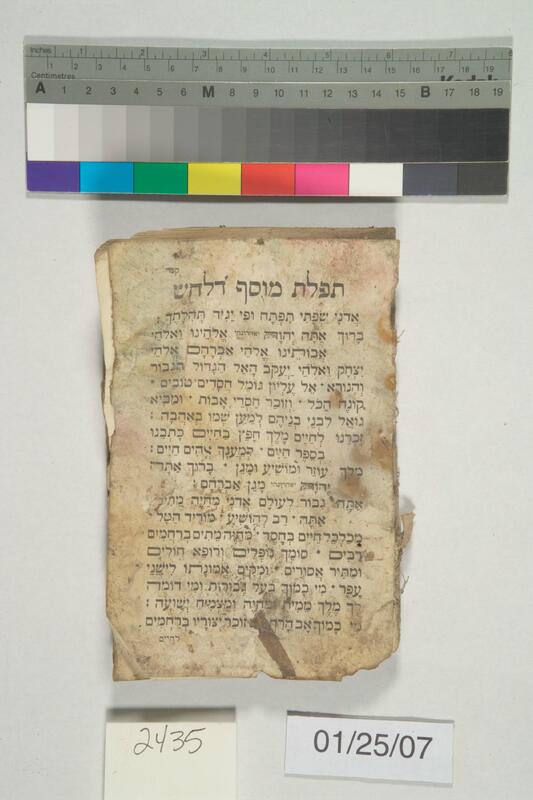 Inches 1 2 3 4 5 6 7 8
Centimetres 1 2 3 4 5 6 7 8 9 10 11 12 13 14 15 16 17 18 19
A 1 2 3 4 5 6 M 8 9 10 11 12 13 14 15 B 17 18 19
תפלת מוסף דלחש
אֲדֹנָי שְׂפָתַי תִּפְתָּח וּפִי יַגִּיד תְּהִלָּתֶךָ
בָּרוּךְ אַתָּה אֱלֹהֵינוּ וֵאלֹהֵי
אֲבוֹתֵינוּ אֱלֹהֵי אַבְרָהָם אֱלֹהֵי
יִצְחָק וֵאלֹהֵי יַעֲקֹב הָאֵל הַגָּדוֹל הַגִּבּוֹר
וְהַנּוֹרָא אֵל עֶלְיוֹן גּוֹמֵל חֲסָדִים טוֹבִים
קוֹנֵה הַכֹּל וְזוֹכֵר חַסְדֵי אָבוֹת וּמֵבִיא
גוֹאֵל לִבְנֵי בְנֵיהֶם לְמַעַן שְׁמוֹ בְּאַהֲבָה :
זָכְרֵנוּ לְחַיִּים מֶלֶךְ חָפֵץ בַּחַיִּים כָּתְבֵנוּ
בְּסֵפֶר חַיִּים לְמַעֲנָךְ אֱהִים חַיִּים :
מֶלֶךְ עוֹזֵר וּמוֹשִׁיעַ וּמָגֵן בָּרוּךְ אַתָּה
מָגֵן אַבְרָהָם :
אַתָּה גִבּוֹר לְעוֹלָם אֲדֹנָי מְחַיֶּה מֵתִים
אַתָּה רַב לְהוֹשִׁיעַ מוֹרִיד הַטַּל
מְכַלְכֵּל חַיִּים בְּחֶסֶד מְחַיֵּה מֵתִים בְּרַחֲמִים
רַבִּים סוֹמֵךְ נוֹפְלִים וְרוֹפֵא חוֹלִים
וּמַתִּיר אֲסוּרִים וּמְקַיֵּם אֱמוּנָתוֹ לִישֵׁנֵי
עָפָר מִי כָמוֹךָ בַּעַל גְּבוּרוֹת וּמִי דוֹמֶה
לָךְ מֶלֶךְ מֵמִית וּמְחַיֶּה וּמַצְמִיחַ יְשׁוּעָה :
מִי כָמוֹךָ אַב הָרַחֲמִים זוֹכֵר יְצוּרָיו בְּרַחֲמִים
לחיים
2435
01/25/07